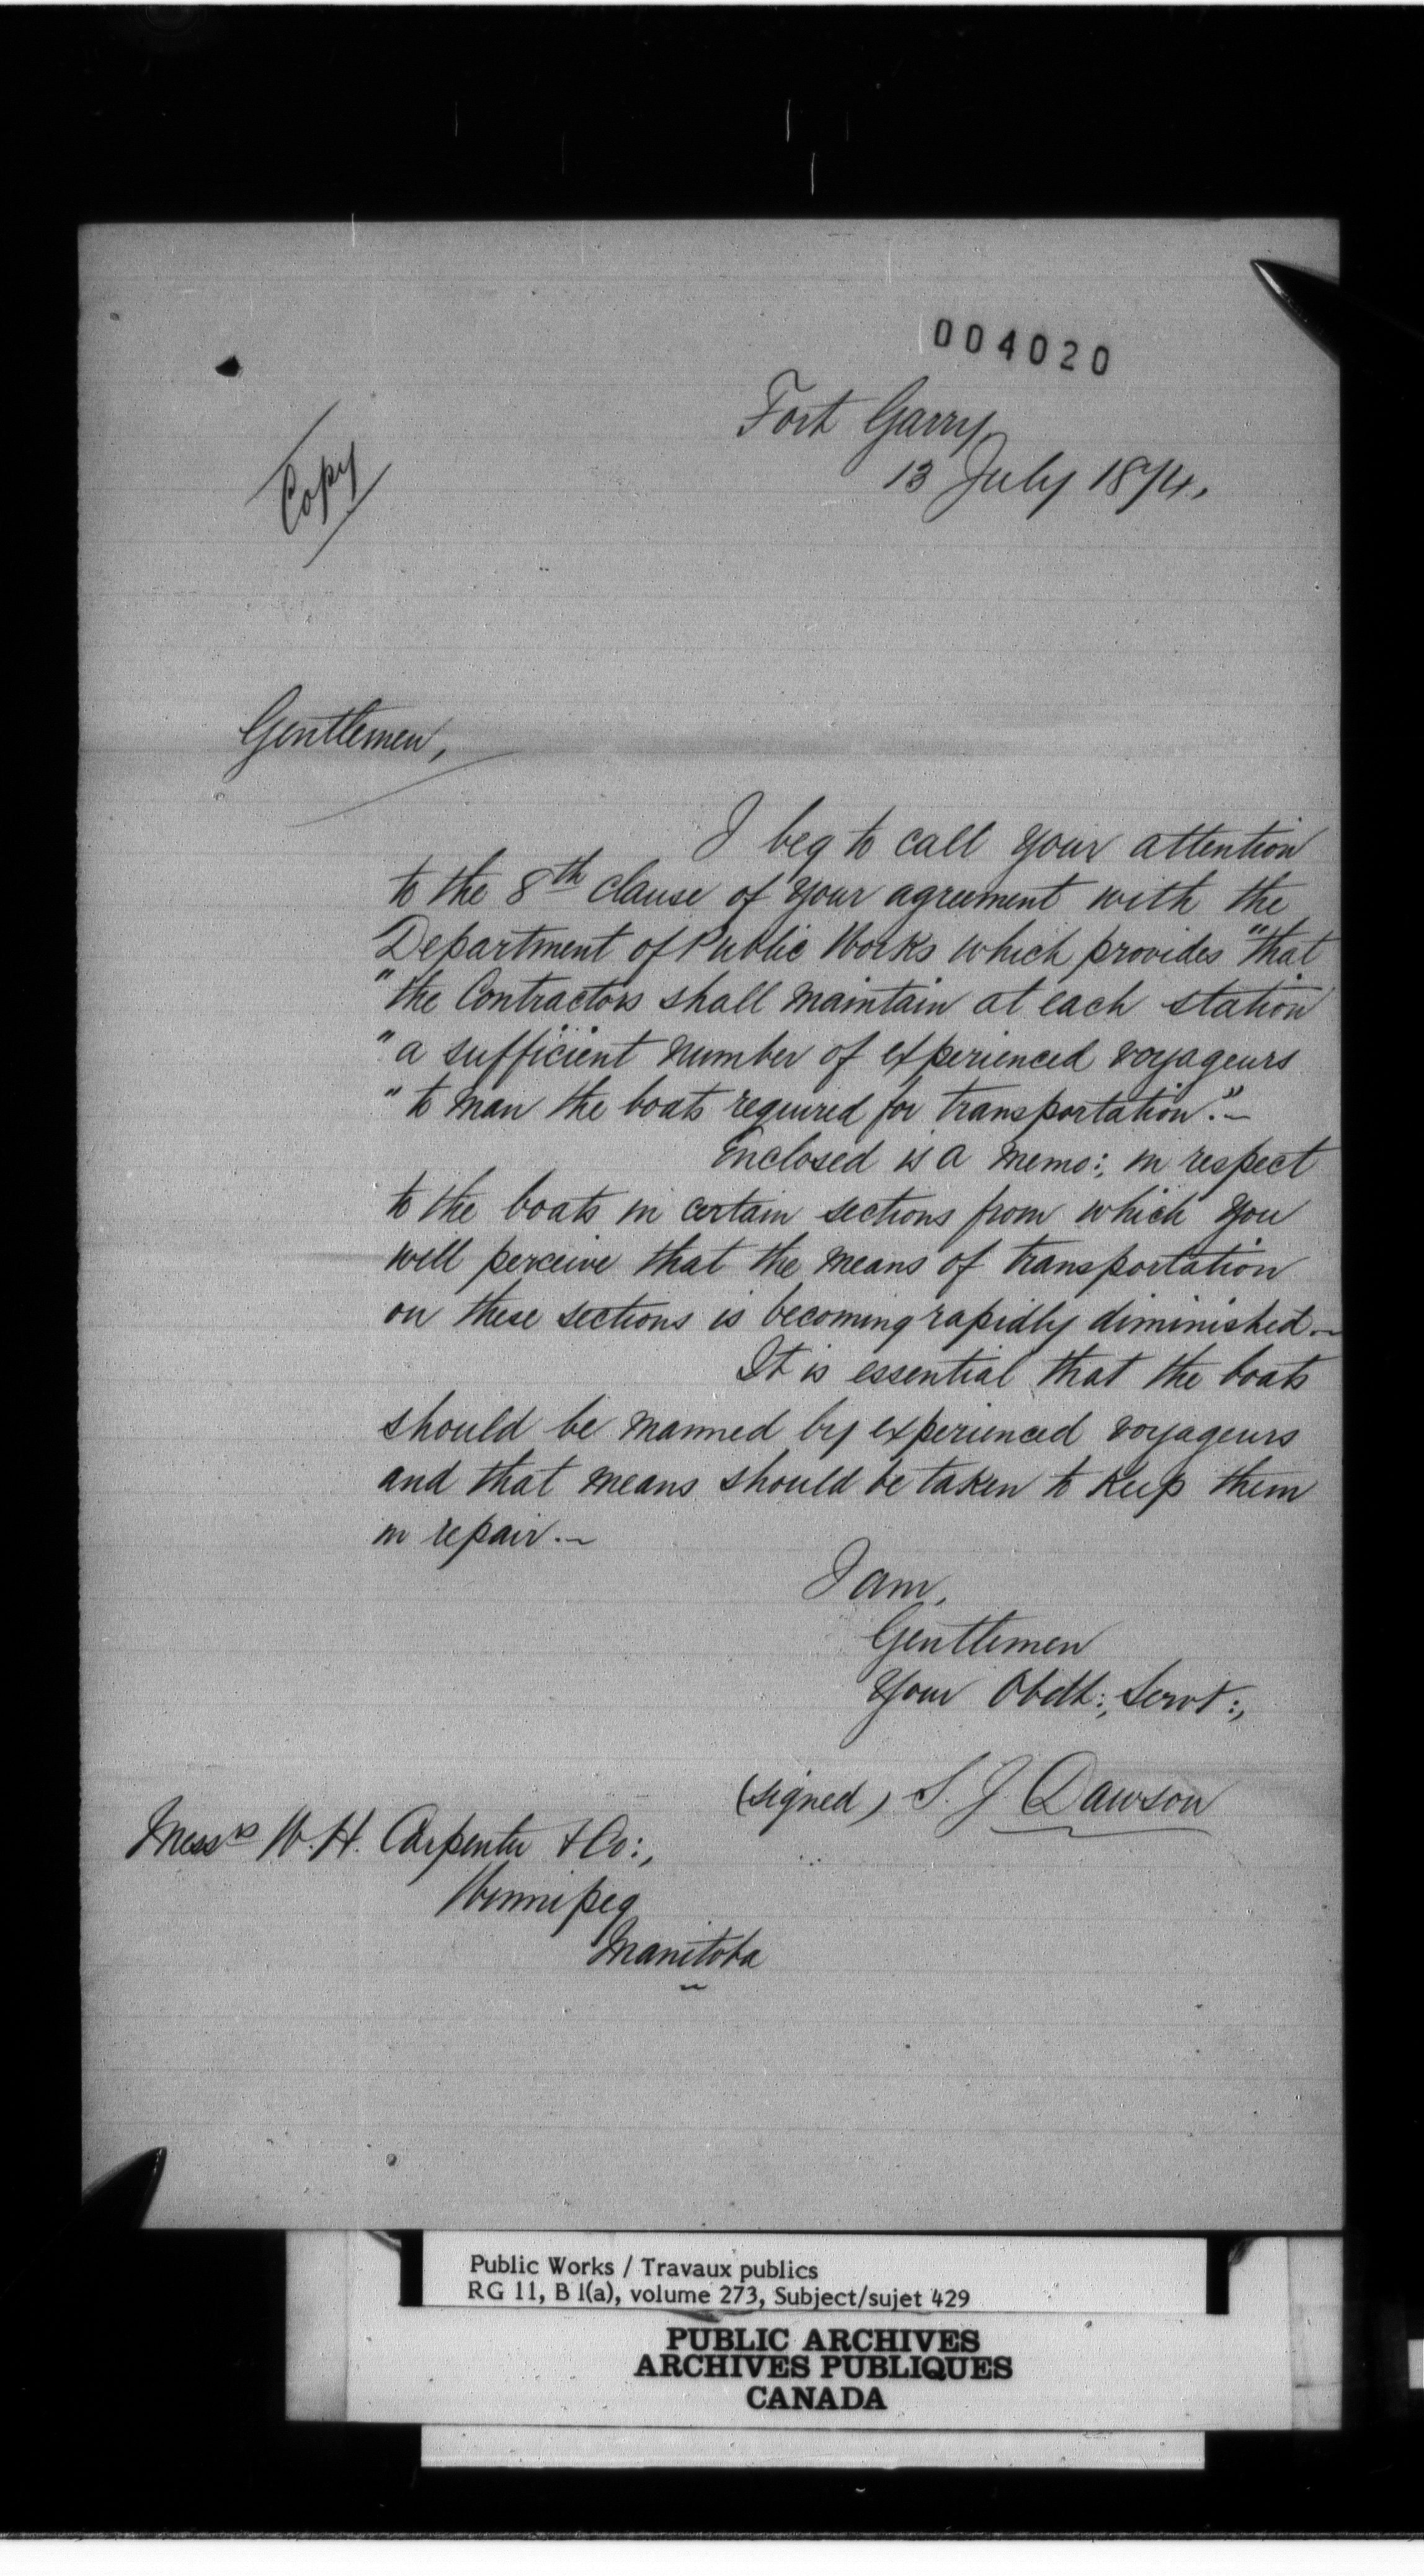 004020
Fort Garry,
13 July 1874,
Copy
Gentlemen,
I beg to call your attention
to the 8th clause of your agreement with the
Department of Public Works which provides "that
"the Contractors shall maintain at each station
"a sufficient number of experienced voyageurs
"to man the boats required for transportation".—
Enclosed is a memo:, in respect
to the boats in certain sections from which you
will perceive that the means of transportation
on these sections is becoming rapidly diminished.—
It is essential that the boats
should be manned by experienced voyageurs
and that means should be taken to keep them
in repair.—
I am,
Gentlemen
Your Obdt:, Servt:,
(signed) S. J. Dawson
Messrs W. H. Carpenter & Co:,
Winnipeg
Manitoba
Public Works / Travaux publics
RG 11, B 1(a), volume 273, Subject/sujet 429
PUBLIC ARCHIVES
ARCHIVES PUBLIQUES
CANADA